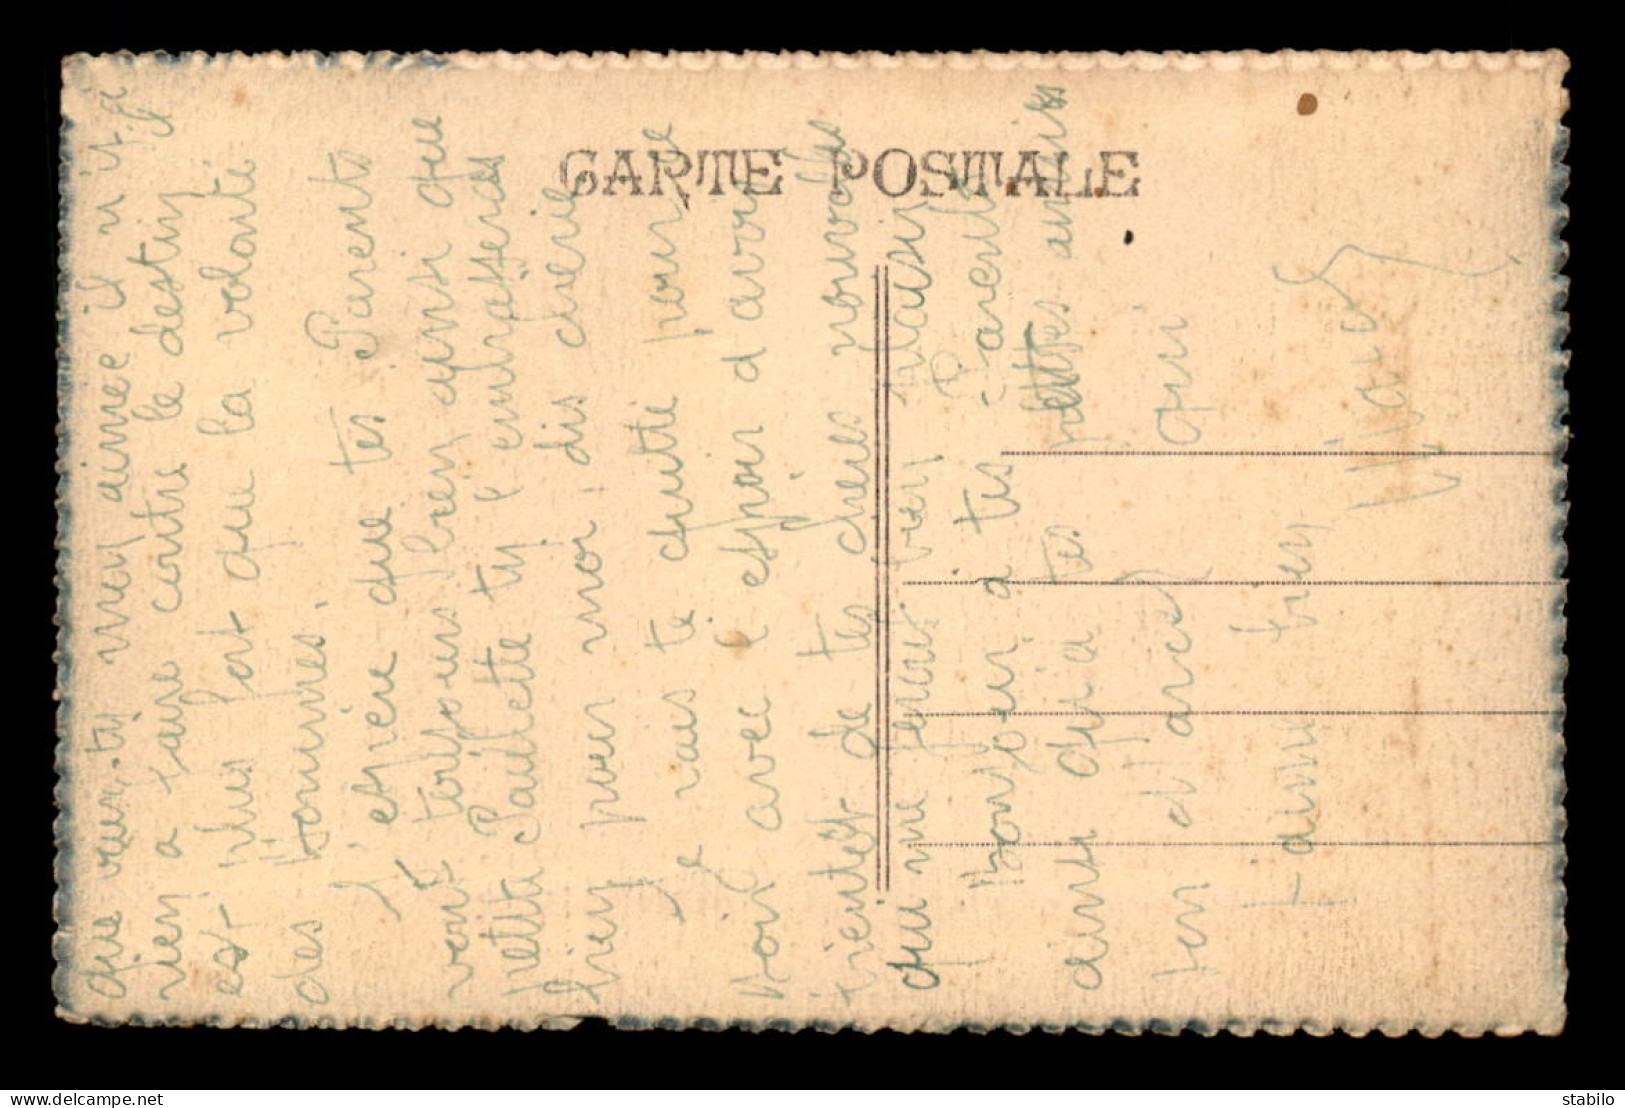 CARTE POSTALE
que veux-tu mon aimée il n'y à
rien a faire contre le destin
est plus fort que la volonté
des hommes.
J'espère que tes Parents
vont toujours bien ainsi que
petite Paulette tu l'embrasseras
bien pour moi, dis chérie
Je vais te quitté pour ce
soir avec l'espoir d'avoir
bientôt de tes chères nouvelles
qui me feront bien plaisir
Bonjour a tes Parents
ainsi qu'a tes petites amies
ton qui
t'aime bien
delcampe.net
stabilo